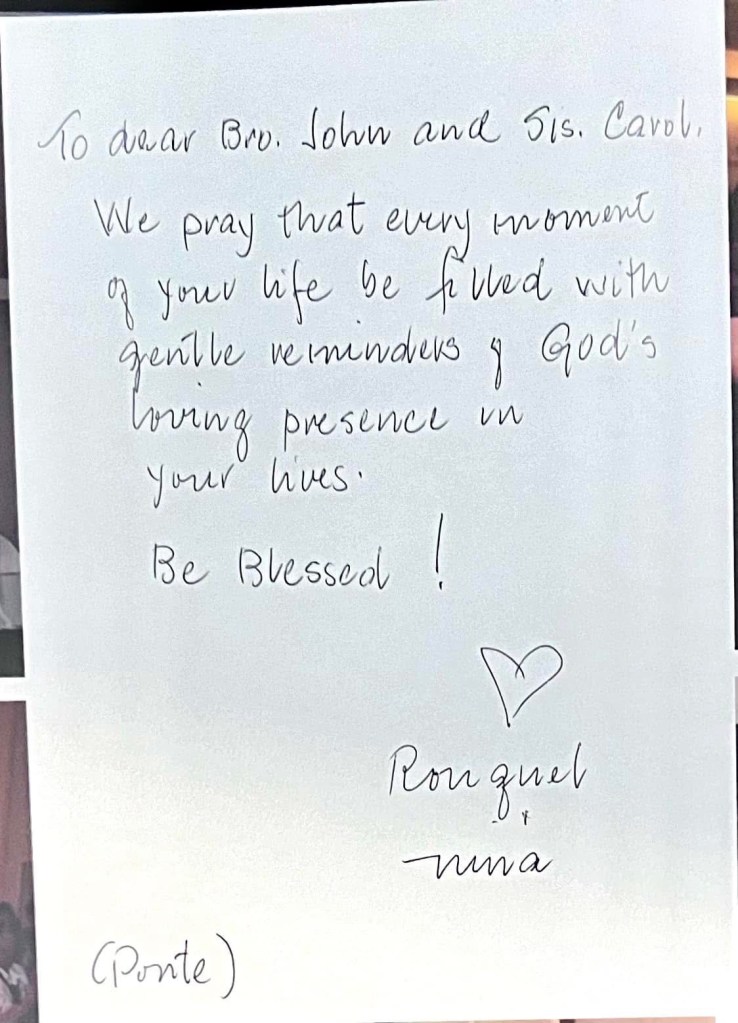 To dear Bro. John and Sis. Carol,
We pray that every moment
of your life be filled with
gentle reminders of God's
loving presence in
your lives.
Be Blessed !
Rouquel
&
nina
(Ponte)